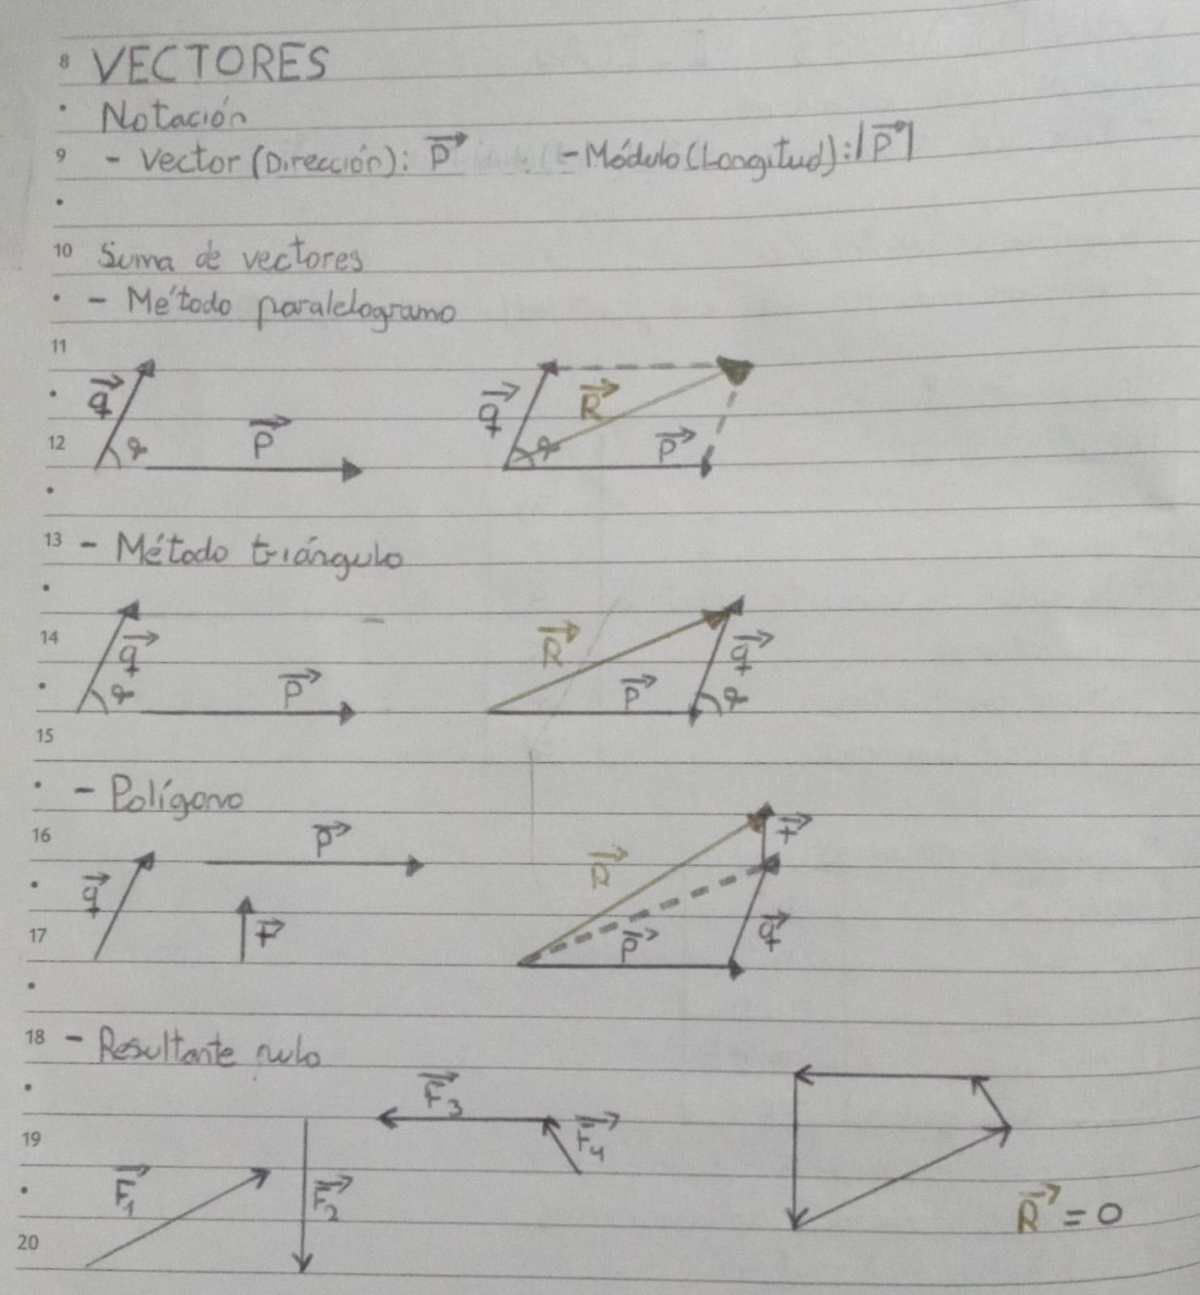 8 VECTORES
Notación
9 - Vector (Dirección): p⃗ - Módulo (Longitud): |p⃗|
10 Suma de vectores
- Método paralelogramo
11
q⃗ q⃗ R⃗
12 α p⃗ α p⃗
13 - Método triángulo
14 q⃗ R⃗ q⃗
α p⃗ p⃗ α
15
- Polígono
16 p⃗ r⃗
q⃗ R⃗
17 r⃗ p⃗ q⃗
18 - Resultante nulo
F⃗3
19 F⃗4
F⃗1 F⃗2 R⃗ = 0
20